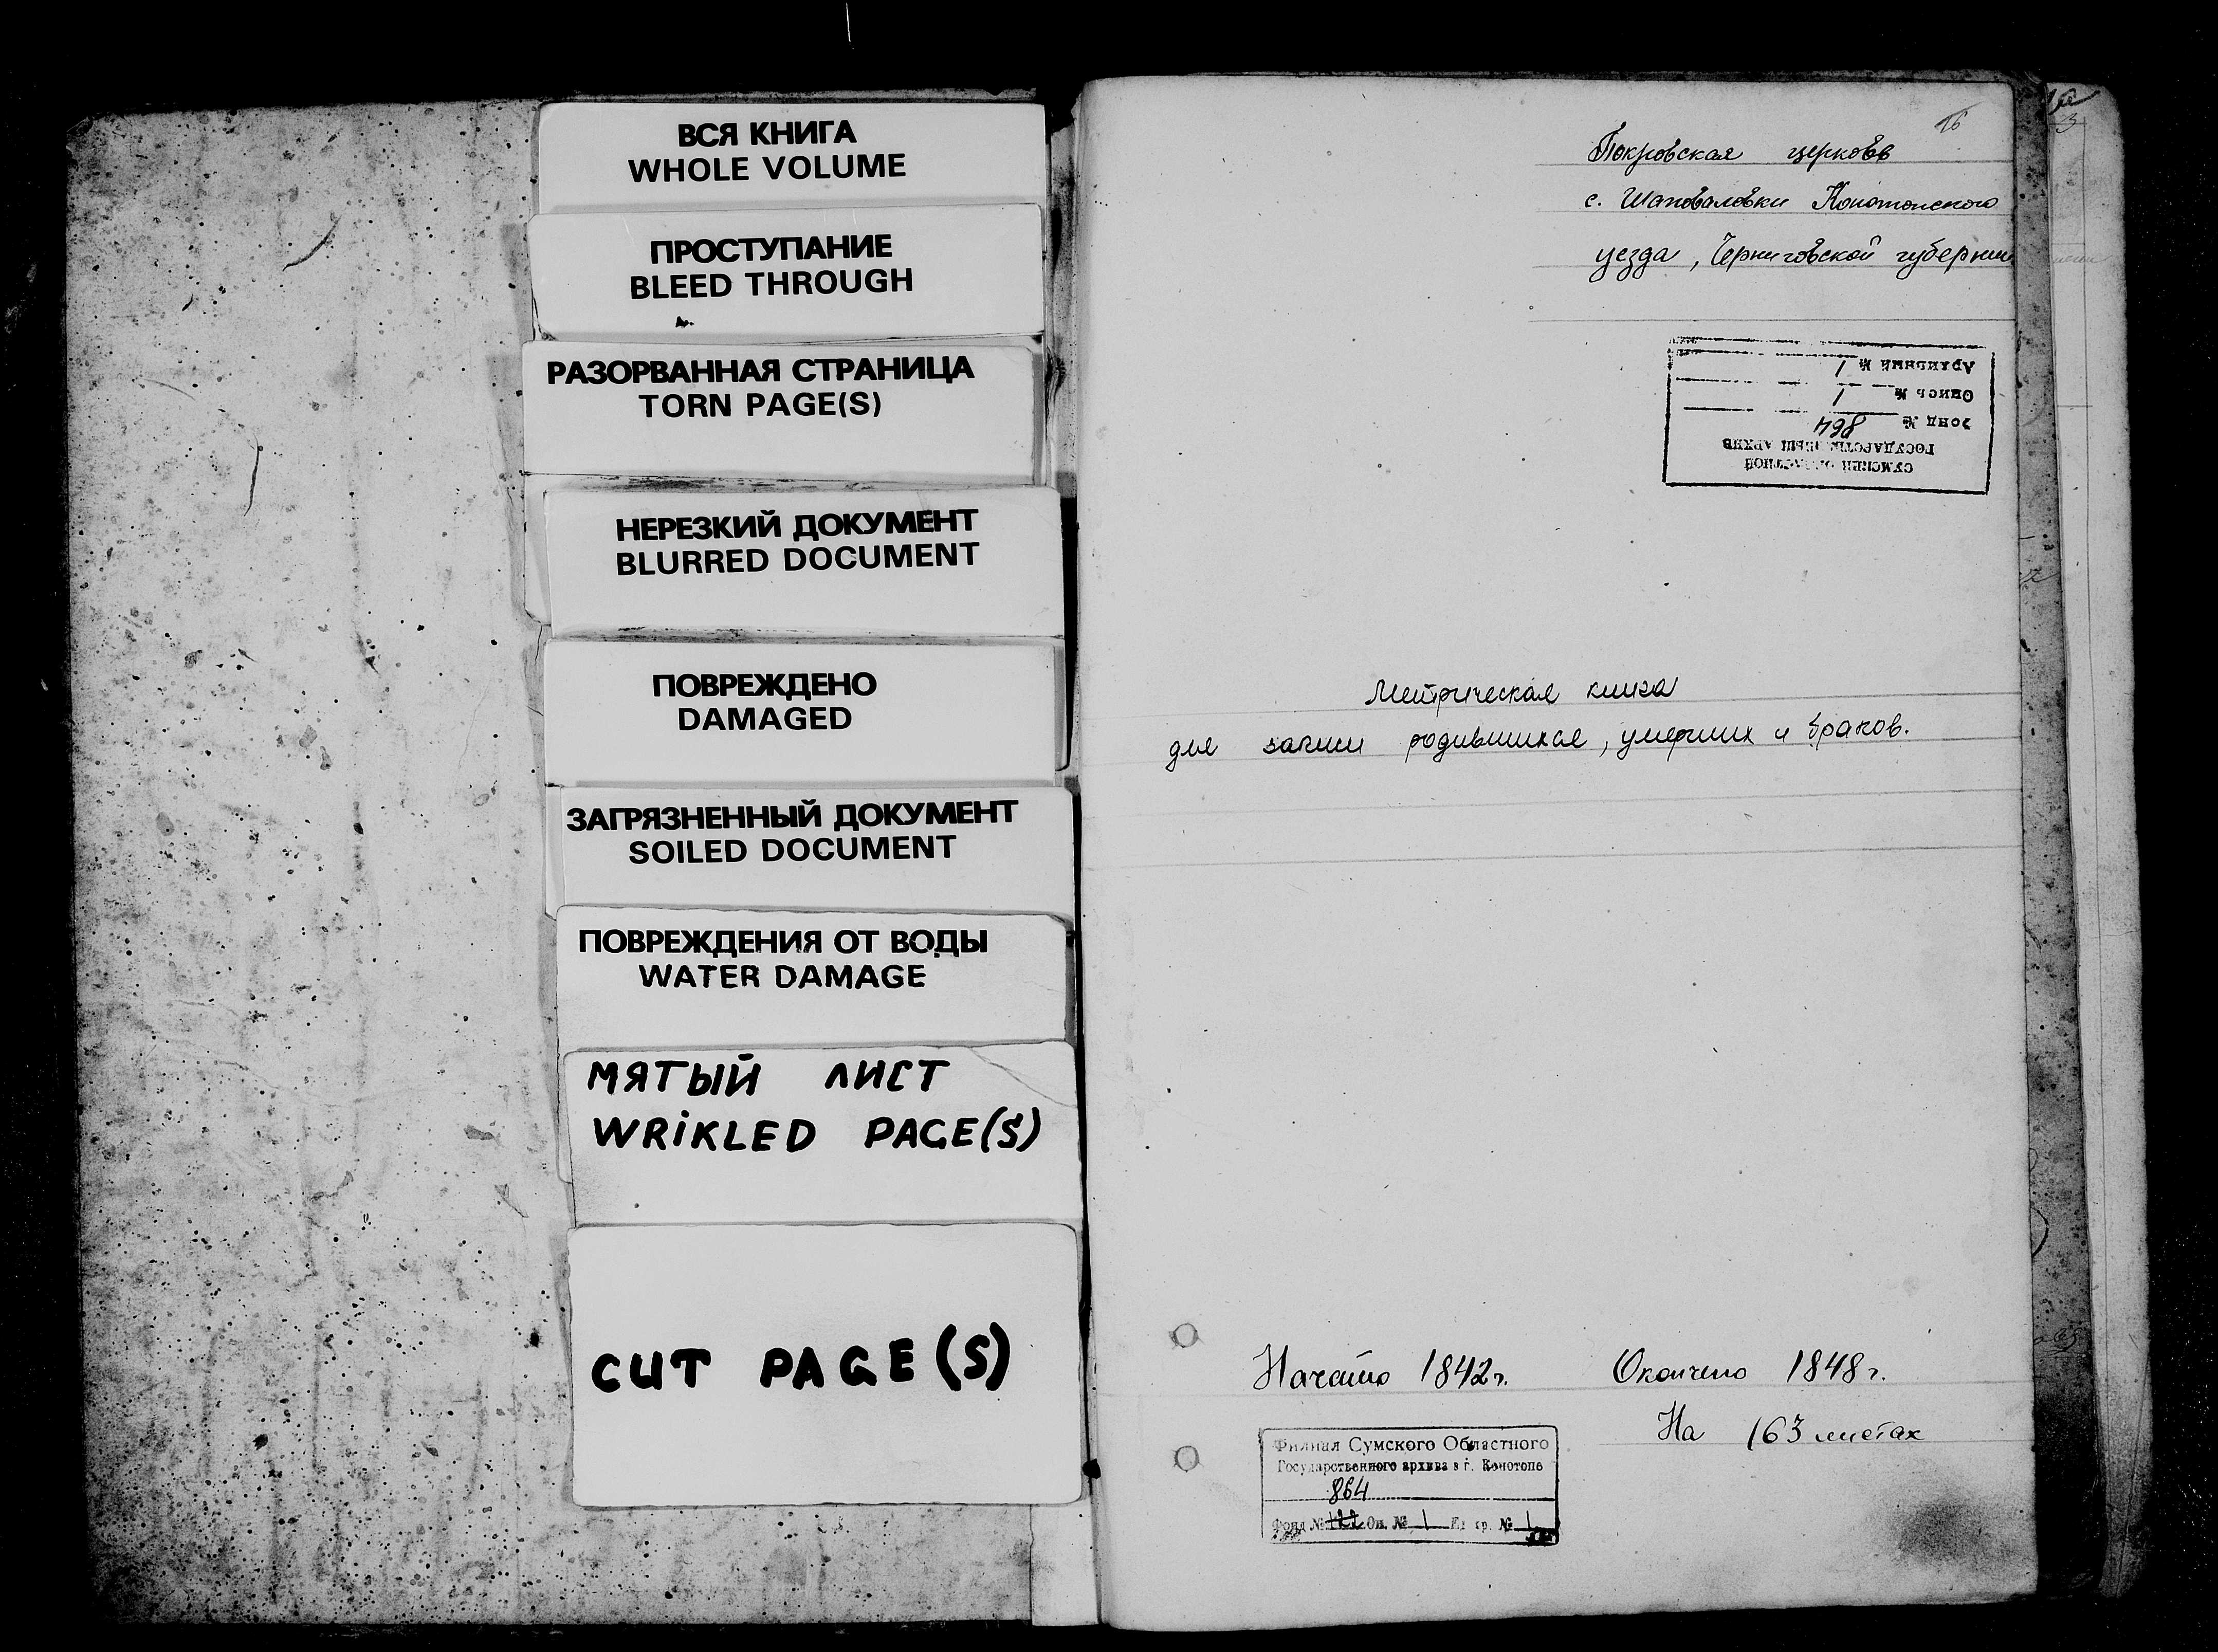 ВСЯ КНИГА
WHOLE VOLUME
ПРОСТУПАНИЕ
BLEED THROUGH
РАЗОРВАННАЯ СТРАНИЦА
TORN PAGE(S)
НЕРЕЗКИЙ ДОКУМЕНТ
BLURRED DOCUMENT
ПОВРЕЖДЕНО
DAMAGED
ЗАГРЯЗНЕННЫЙ ДОКУМЕНТ
SOILED DOCUMENT
ПОВРЕЖДЕНИЯ ОТ ВОДЫ
WATER DAMAGE
МЯТЫЙ ЛИСТ
WRIKLED PAGE(S)
CUT PAGE(S)
Покровская церковь
с. Шаповаловки Конотопского
уезда, Черниговской губернии
СУМСКИЙ ОБЛАСТНОЙ
ГОСУДАРСТВЕННЫЙ АРХИВ
Фонд № 864
Опись № 1
Архивный № 1
Метрическая книга
для записи родившихся, умерших и браков.
Начато 1842 г. Окончено 1848 г.
На 163 листах
Филиал Сумского Областного
Государственного архива в г. Конотопе
864
Фонд № 122 Оп. № 1 Ед. хр. № 1